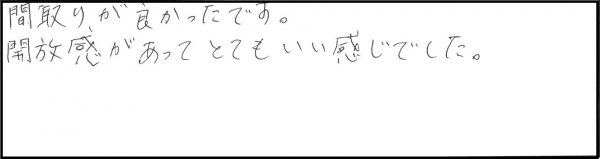 間取りが良かったです。
開放感があってとてもいい感じでした。